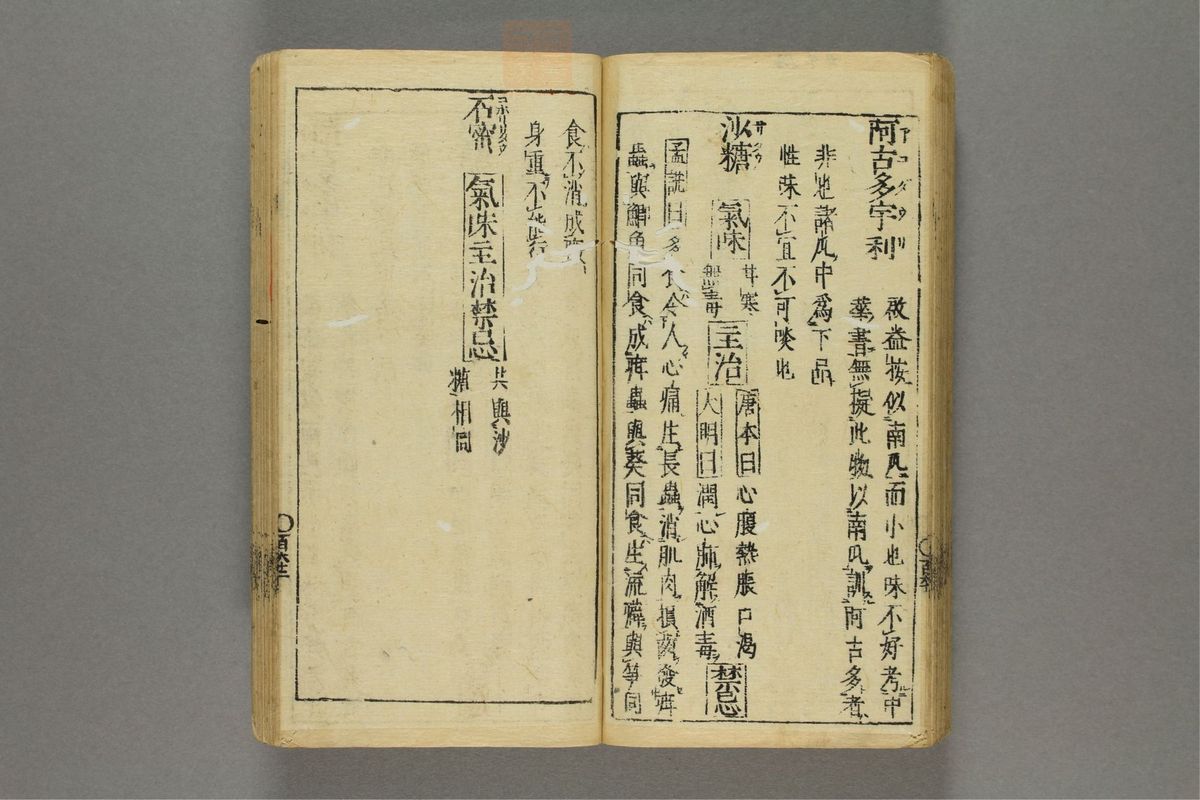 阿古多宇利
アコダウリ
啟益按似南瓜而小也味不好考中
華書無擬此物以南瓜訓阿古多者
非也諸瓜中為下品
性味不宜不可啖也
沙糖
サタウ
氣味
甘寒
無毒
主治
唐本曰心腹熱脹口渴
大明曰潤心肺解酒毒
禁忌
孟詵曰多食令人心痛生長蟲消肌肉損齒發疳
䘌與鯽魚同食成疳蟲與葵同食生流澼與笋同
食不消成癥
身重不能行
石蜜
氣味主治禁忌
共與沙
糖相同